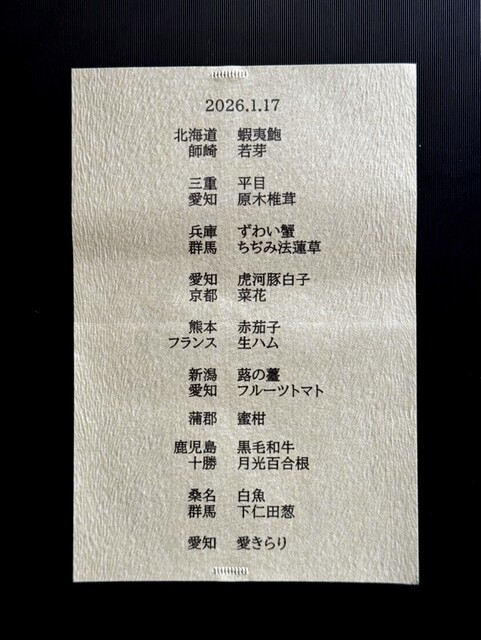 2026.1.17
北海道 蝦夷鮑
師崎 若芽
三重 平目
愛知 原木椎茸
兵庫 ずわい蟹
群馬 ちぢみ法蓮草
愛知 虎河豚白子
京都 菜花
熊本 赤茄子
フランス 生ハム
新潟 蕗の薹
愛知 フルーツトマト
蒲郡 蜜柑
鹿児島 黒毛和牛
十勝 月光百合根
桑名 白魚
群馬 下仁田葱
愛知 愛きらり